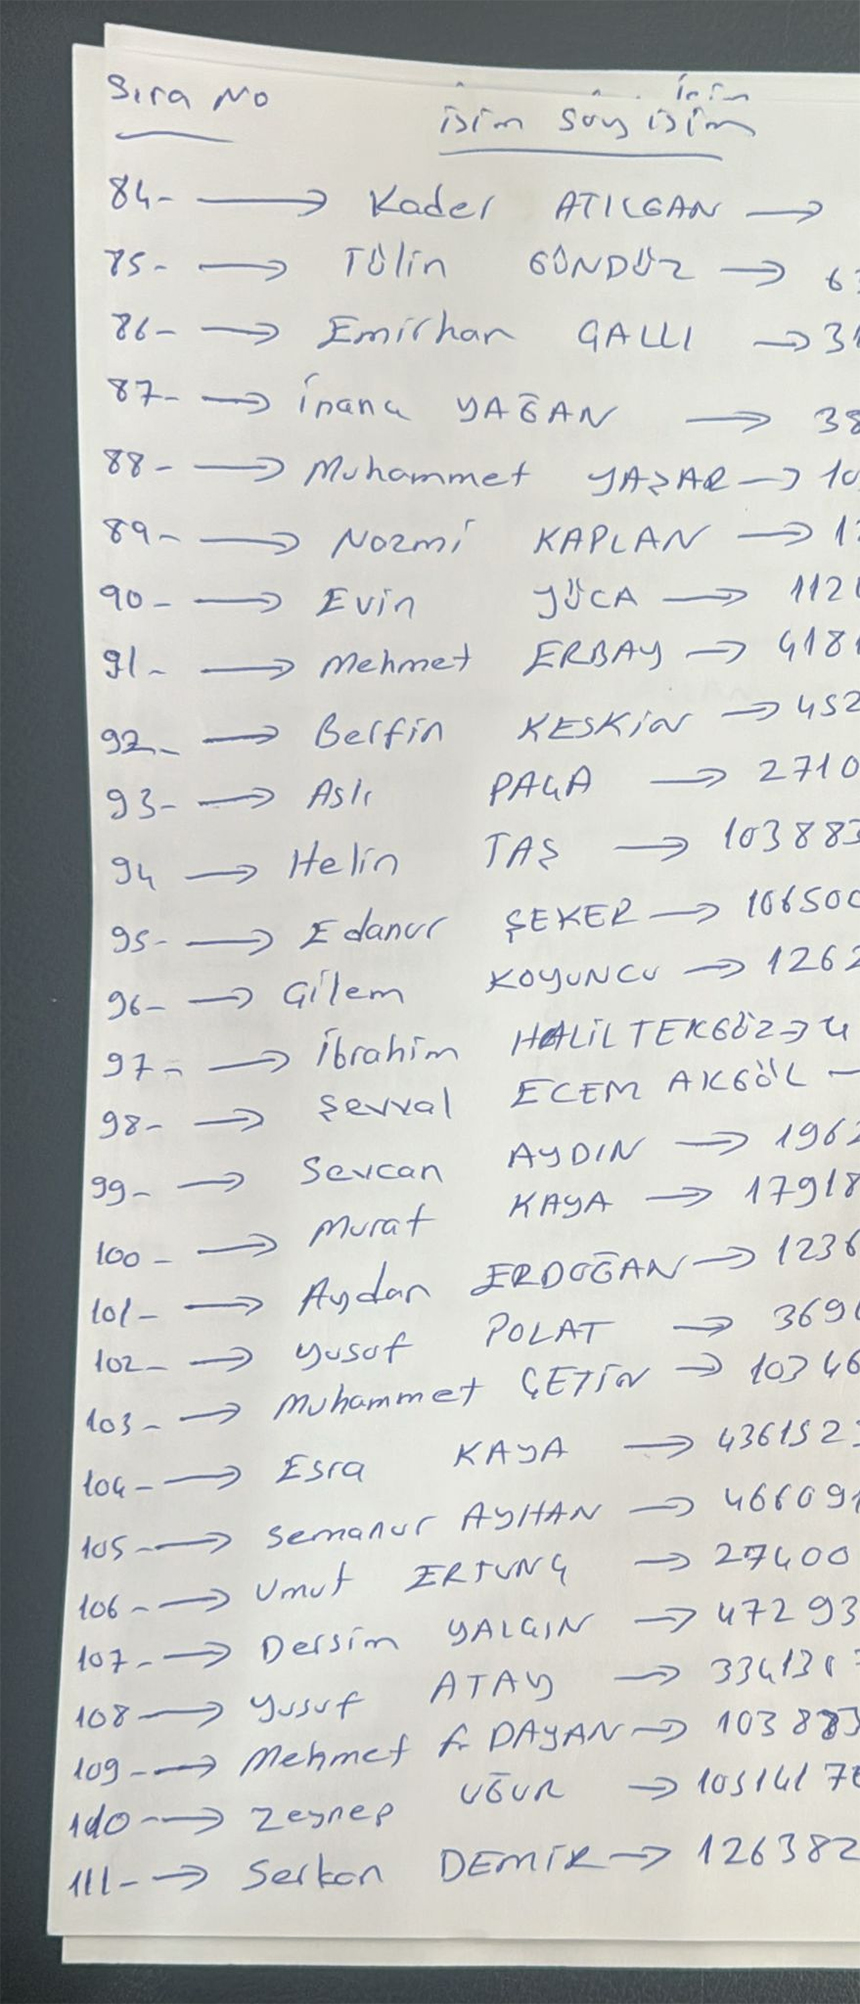 Sıra No
isim Soy isim
84- → Kader ATILGAN →
85- → Tülin GÜNDÜZ → 63
86- → Emirhan GALLI → 31
87- → İnanç YAĞAN → 38
88- → Muhammet YAŞAR → 10
89- → Nazmi KAPLAN → 12
90- → Evin YÜCA → 112
91- → Mehmet ERBAY → 4181
92- → Berfin KESKİN → 452
93- → Aslı PAÇA → 2710
94 → Helin TAŞ → 103883
95- → Edanur ŞEKER → 106500
96- → Çilem KOYUNCU → 1262
97- → İbrahim HALİL TEKGÖZ → 4
98- → Şevval ECEM AKGÖL -
99- → Sevcan AYDIN → 1962
100- → Murat KAYA → 17918
101- → Aydan ERDOĞAN → 1236
102- → Yusuf POLAT → 369
103- → Muhammet ÇETİN → 10346
104- → Esra KAYA → 4361523
105- → Semanur AYHAN → 466091
106- → Umut ERTUNÇ → 27400
107- → Dersim YALÇIN → 47293
108 → Yusuf ATAY → 334130
109- → Mehmet f. DAYAN → 103883
110- → Zeynep UĞUR → 10514170
111- → Serkan DEMİR → 126382